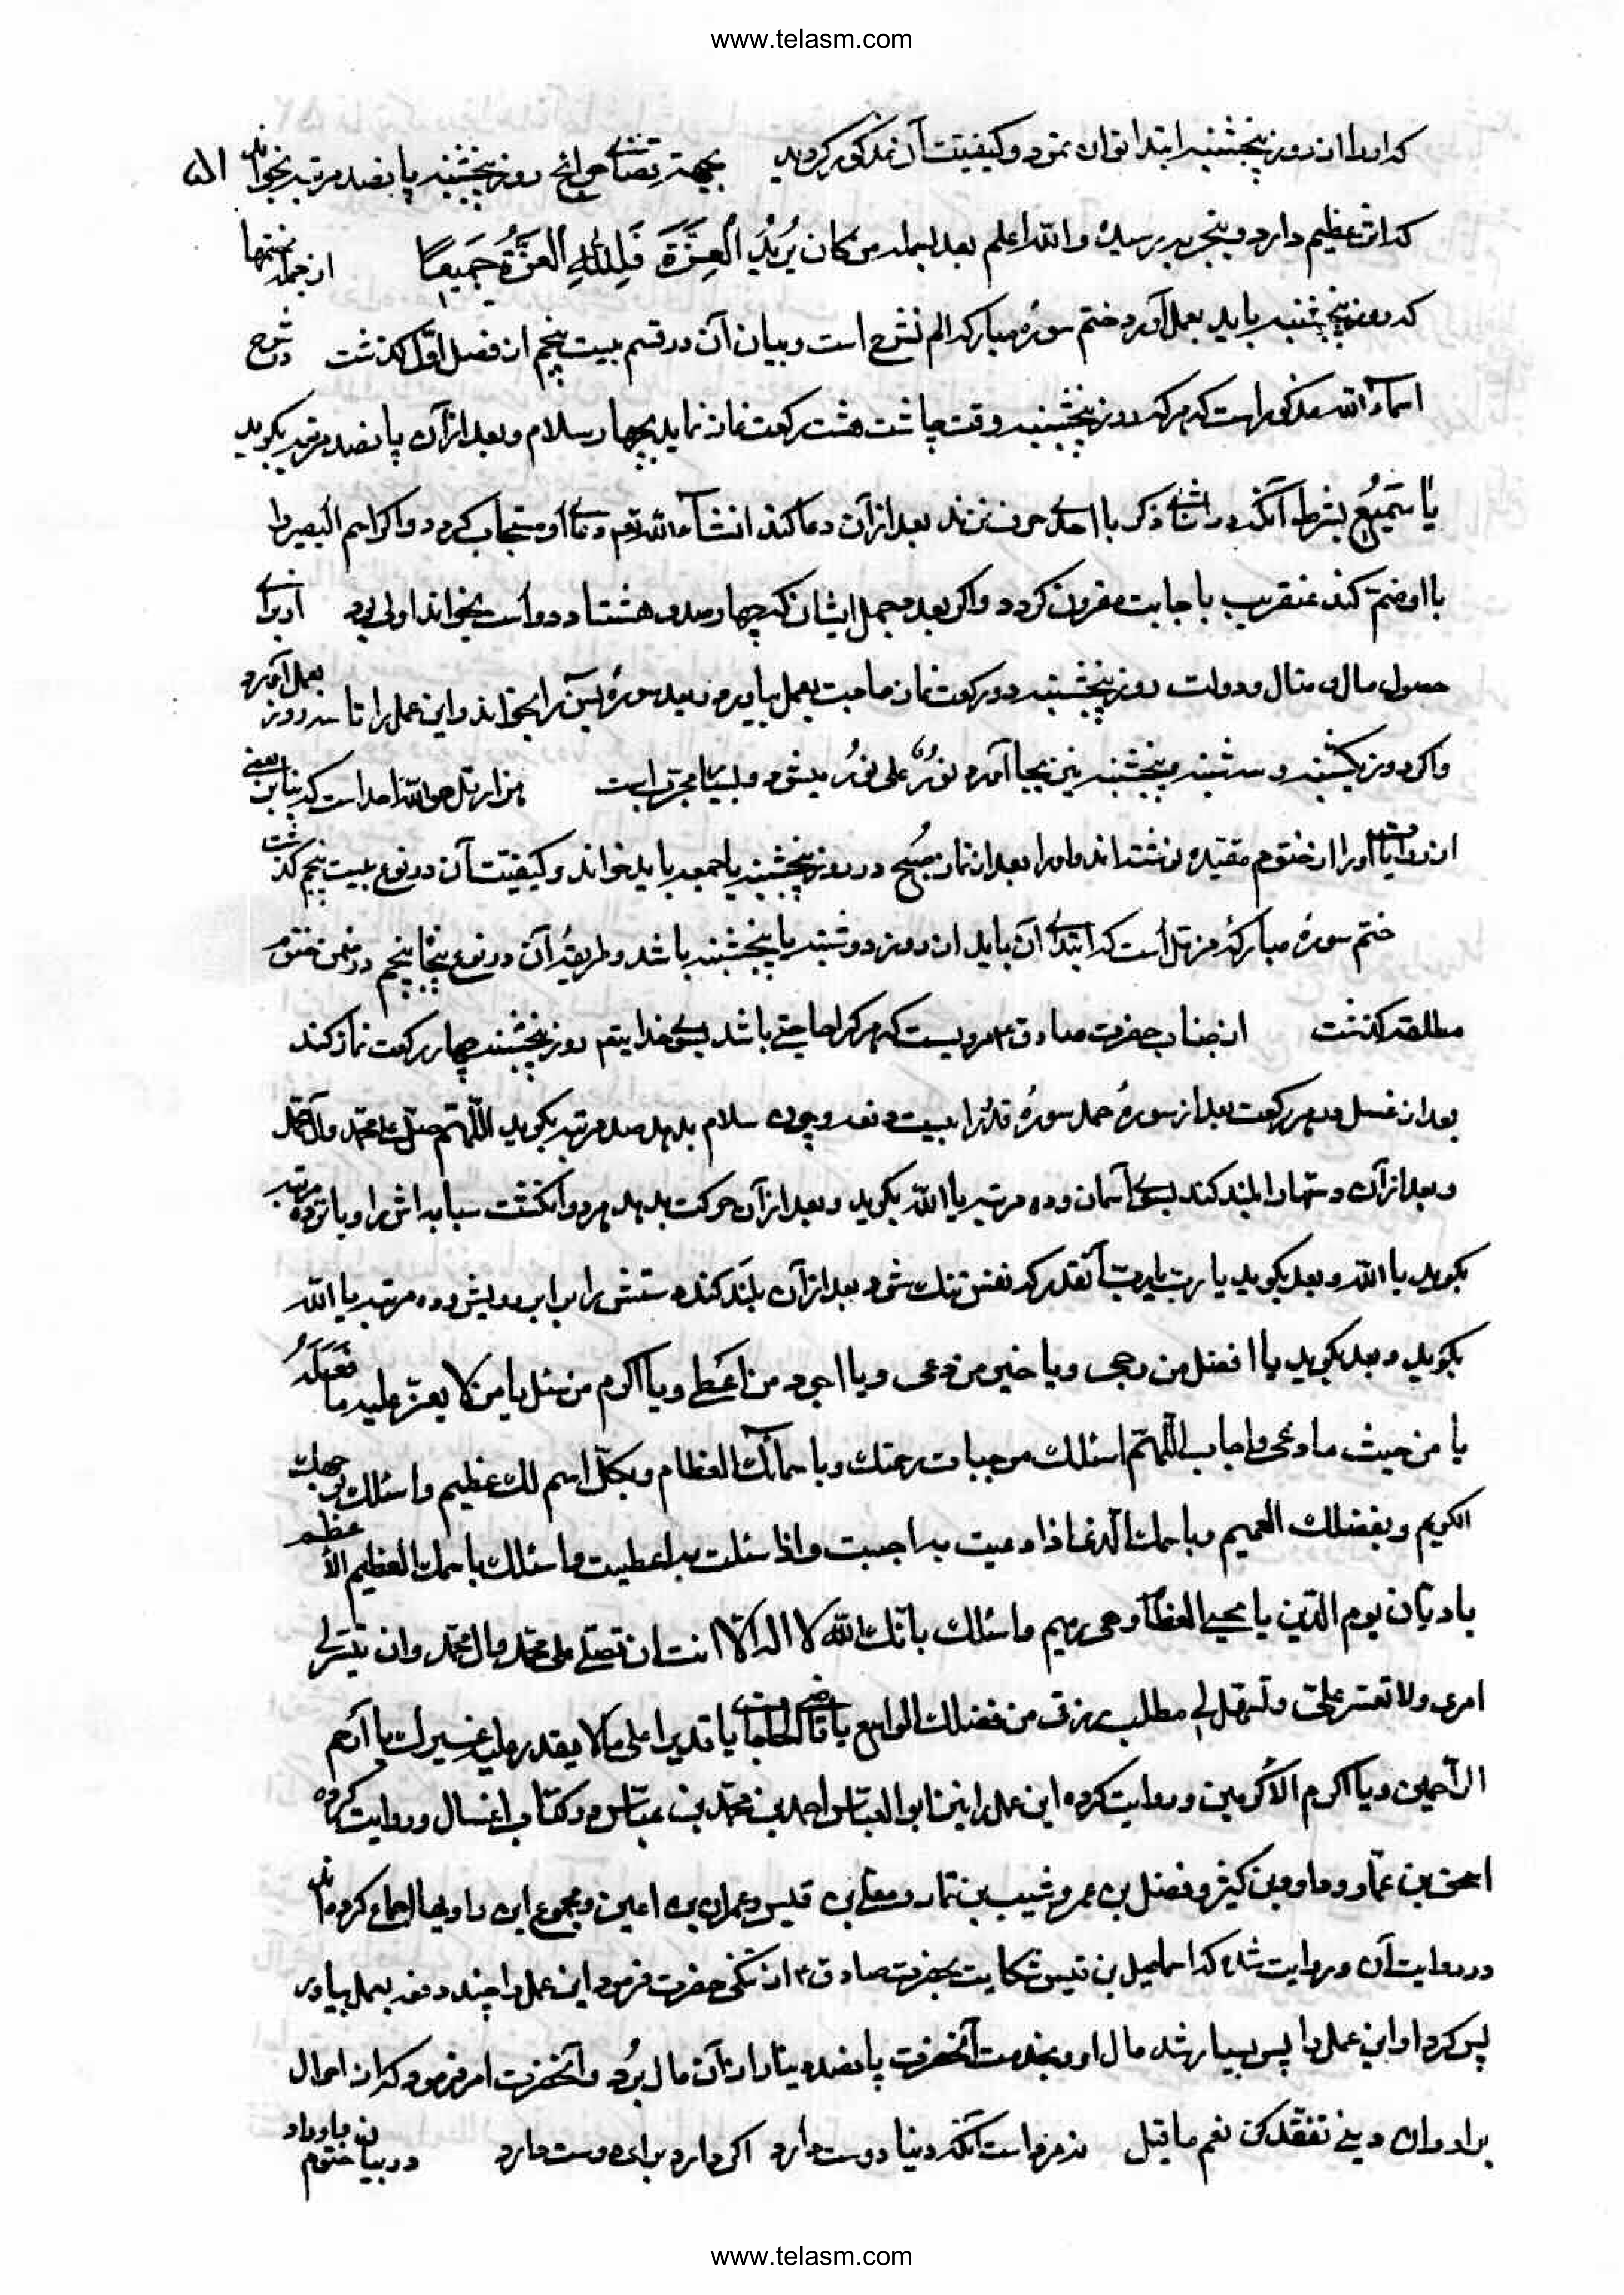 www.telasm.com
که او را از روز پنجشنبه ابتدا توان نمود و کیفیت آن مذکور گردید بجهة قضای حوائج روز پنجشنبه پانصد مرتبه بخواند
که اثر عظیم دارد و بتجربه رسیده والله اعلم بعد بسمله من کان یُریدُ الْعِزَّةَ فَلِلّٰهِ الْعِزَّةُ جَمیعاً از جمله ختمها
که روز پنجشنبه باید بعمل آورد ختم سورهٔ مبارکه الم نشرح است و بیان آن در قسم بیست پنجم از فصل اوّل گذشت در شرح
اسماء الله مذکور است که هر که روز پنجشنبه وقت چاشت هشت رکعت نماز نماید بچهار سلام و بعد از آن پانصد مرتبه بگوید
یا سَمیعُ بشرط آنکه در اثنای ذکر با احدی حرف نزند بعد از آن دعا کند انشآءالله تعم دعای او مستجاب گردد و اگر اسم البصیر را
با او ضمّ کند عنقریب باجابت مقرون گردد و اگر بعدد مجمل ایشان که چهارصد و هشتاد و دو است بخواند اولی بود از برای
حصول مال و منال و دولت روز پنجشنبه دو رکعت نماز حاجت بعمل بیاورد و بعد سورهٔ یس را بخواند و این عمل را تا سه روز بعمل آورد
و اگر روز یکشنبه و سه شنبه و پنجشنبه نیز بجا آورد نورٌ علی نورُ میشود و بسیار مجرّب است هزار قل هو الله احد است که بنابر بعضی
از روایات او را از ختوم مقیّده نوشته اند و او را بعد از نماز صُبح در روز پنجشنبه یا جمعه باید خواند و کیفیّت آن در نوع بیست پنجم گذشت
ختم سورهٔ مبارکهٔ مزمّل است که ابتدای آن باید از روز دوشنبه یا پنجشنبه باشد و طریقهٔ آن در نوع پنجاه پنجم در ضمن ختوم
مطلقه گذشت از جناب حضرت صادق ع مرویست که هر که را حاجتی باشد بسوی خدا یتعم روز پنجشنبه چهار رکعت نماز کند
بعد از غسل و در هر رکعت بعد از سورهٔ حمد سورهٔ قدر را بیست دفعه و چون سلام بدهد صد مرتبه بگوید اللّهمّ صلّ علی محمّد و آل محمّد
و بعد از آن دستها را بلند کند بسوی آسمان و ده مرتبه یا الله بگوید و بعد از آن حرکت بدهد هر دو انگشت سبابه اش را و باز ده مرتبه
بگوید یا الله و بعد بگوید یا ربّ یا ربّ آنقدر که نفس تنک شود بعد از آن بلند کند دستش را برابر رویش و ده مرتبه یا الله
بگوید و بعد بگوید یا افضل من رجی و یا خیر من دعی و یا اجود من اعطی و یا اکرم من سئل یا من لا یعزّ علیه ما فعله
یا من حیث ما دعی اجاب اللّهمّ اسئلک موجبات رحمتک و باسمائک العظام و بکلّ اسم لک عظیم و اسئلک بوجهک
الکریم و بفضلک العمیم و باسمک الّذی اذا دعیت به اجبت و اذا سئلت به اعطیت و اسئلک باسمک العظیم الأعظم
یا دیّان یوم الدّین یا محیی العظام و هی رمیم و اسئلک بانّک الله لا اله الّا انت ان تصلّی علی محمّد و ال محمّد و ان تیسّر لی
امری و لا تعسّر علیّ و تسهّل لی مطلب رزقی من فضلک الواسع یا قاضی الحاجات یا قدیرا علی ما لا یقدر علیه غیرک یا ارحم
الرّاحمین و یا اکرم الاکرمین و روایت کرده این عمل را نیز ابو العبّاس احمد بن محمّد بن عبّاس در کتاب اغسال و روایت کرده
اسحق بن عمّار و داود بن کثیر و فضل بن عمر و شبیب بن تمار و معلّی بن قیس و عمران بن اعین و مجموع این راویها اجماع کرده اند
در روایت آن و روایت شده که اسمعیل بن قیس شکایت بحضرت صادق ع از تنگی حضرت فرمود این عمل را چند دفعه بعمل بیاور
پس کرد او این عمل را پس بسیار شد مال او و بخدمت آنحضرت پانصد دینار از آن مال بُرد و آنحضرت امر فرمود که از احوال
برادران دینی تفقّد کن نعم ما قیل نه مرد است آنکه دنیا دوست دارد اگر دارد برای دوست دارد در بیان ختوم
www.telasm.com